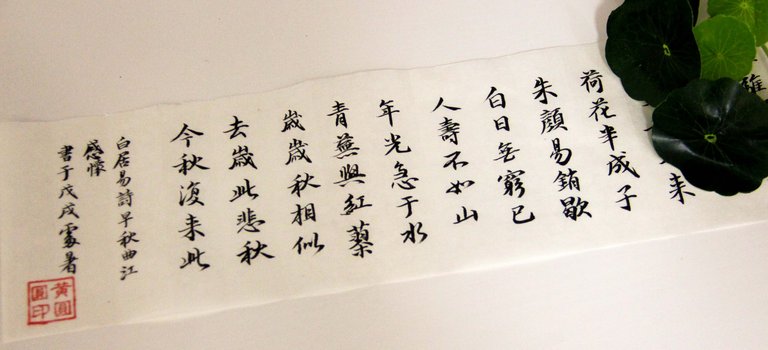 來
荷花半成子
朱顏易銷歇
白日無窮已
人壽不如山
年光急于水
青蕪與紅蓼
歲歲秋相似
去歲此悲秋
今秋復来此
白居易詩早秋曲江
感懷
書于戊戌處暑
黃圓
圓印